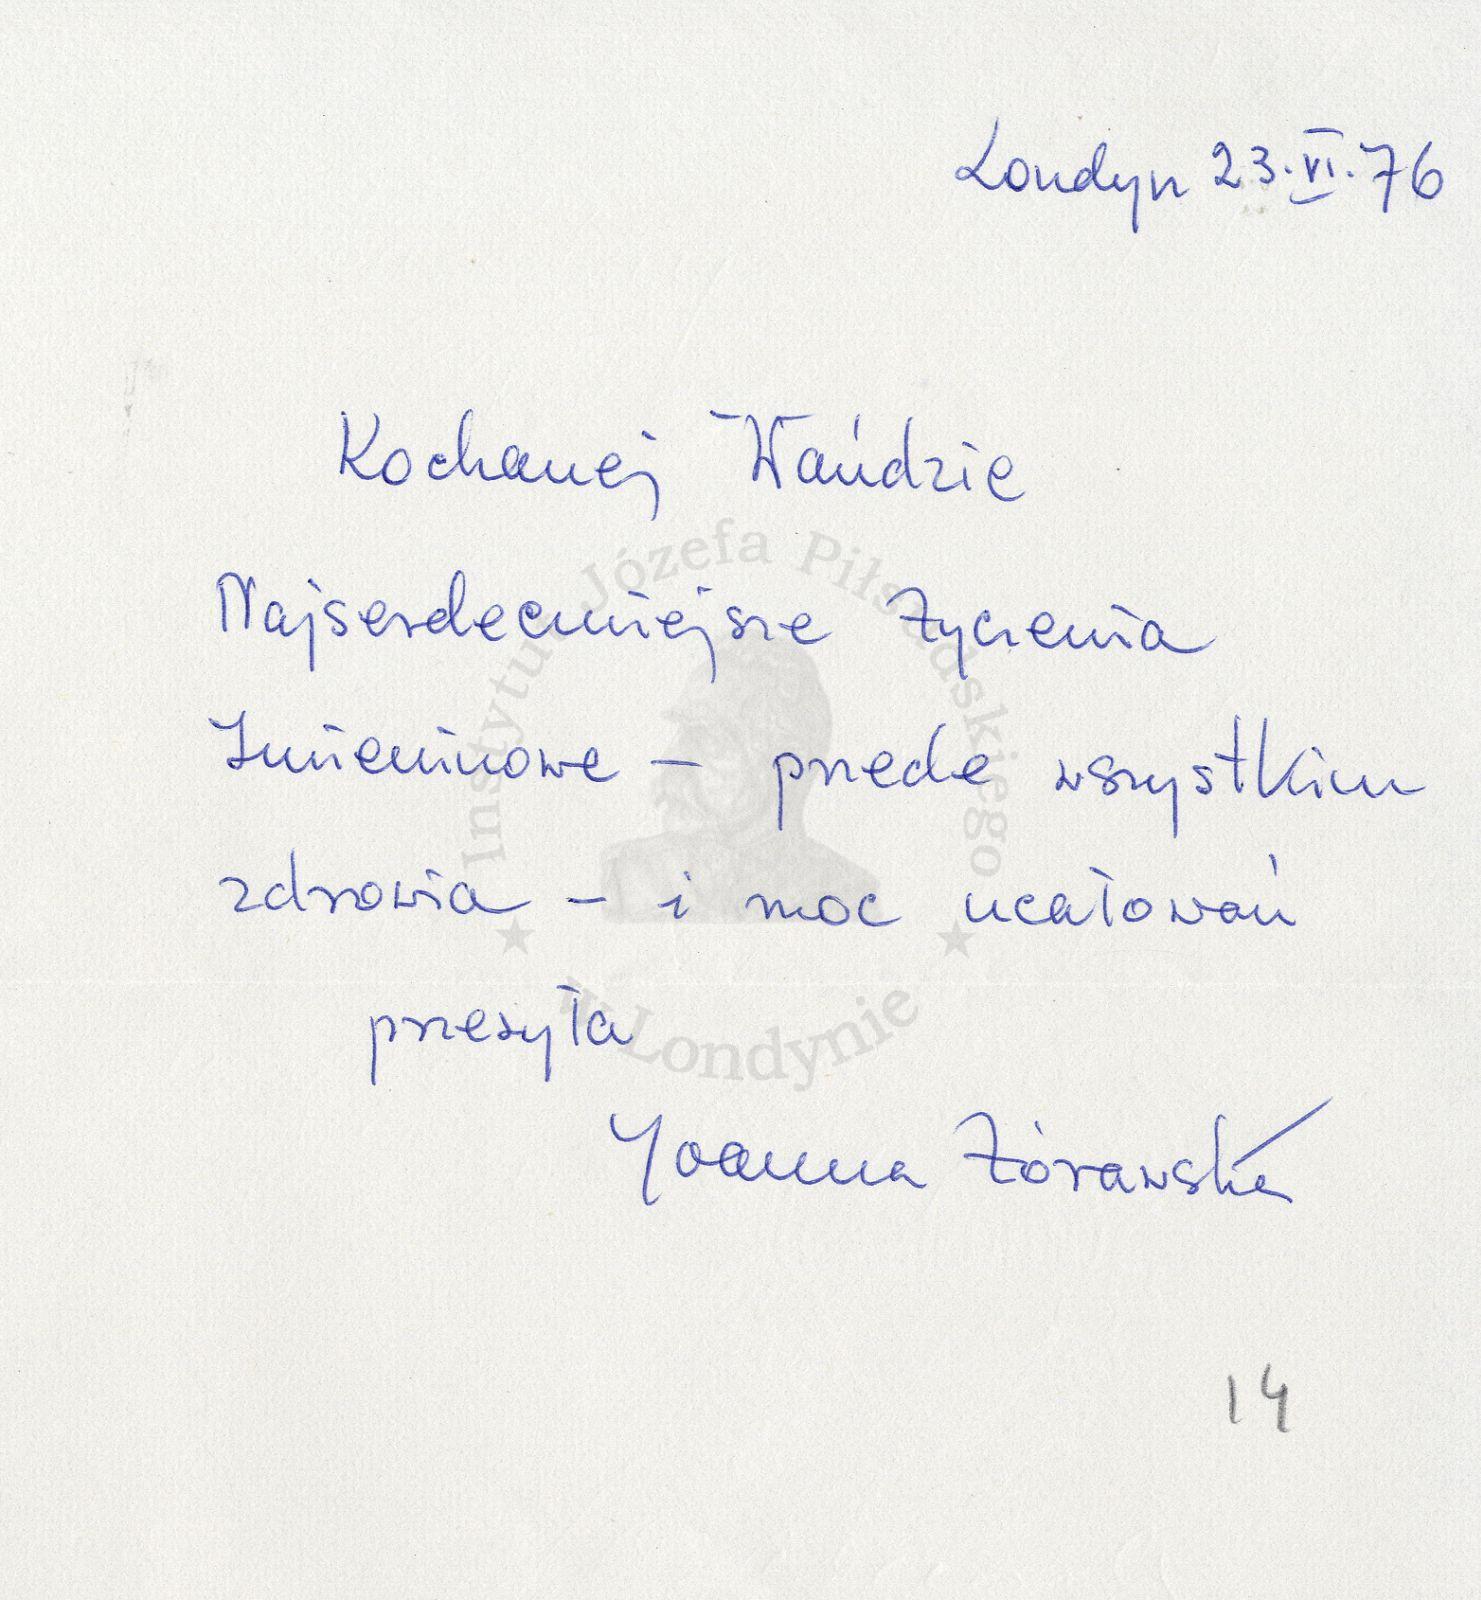 Londyn 23.VI.76
Kochanej Wańdzie
Najserdeczniejsze Życzenia
Imieninowe – przede wszystkim
zdrowia – i moc ucałowań
przesyła
Joanna Żórawska
14
Instytut Józefa Piłsudskiego
w Londynie